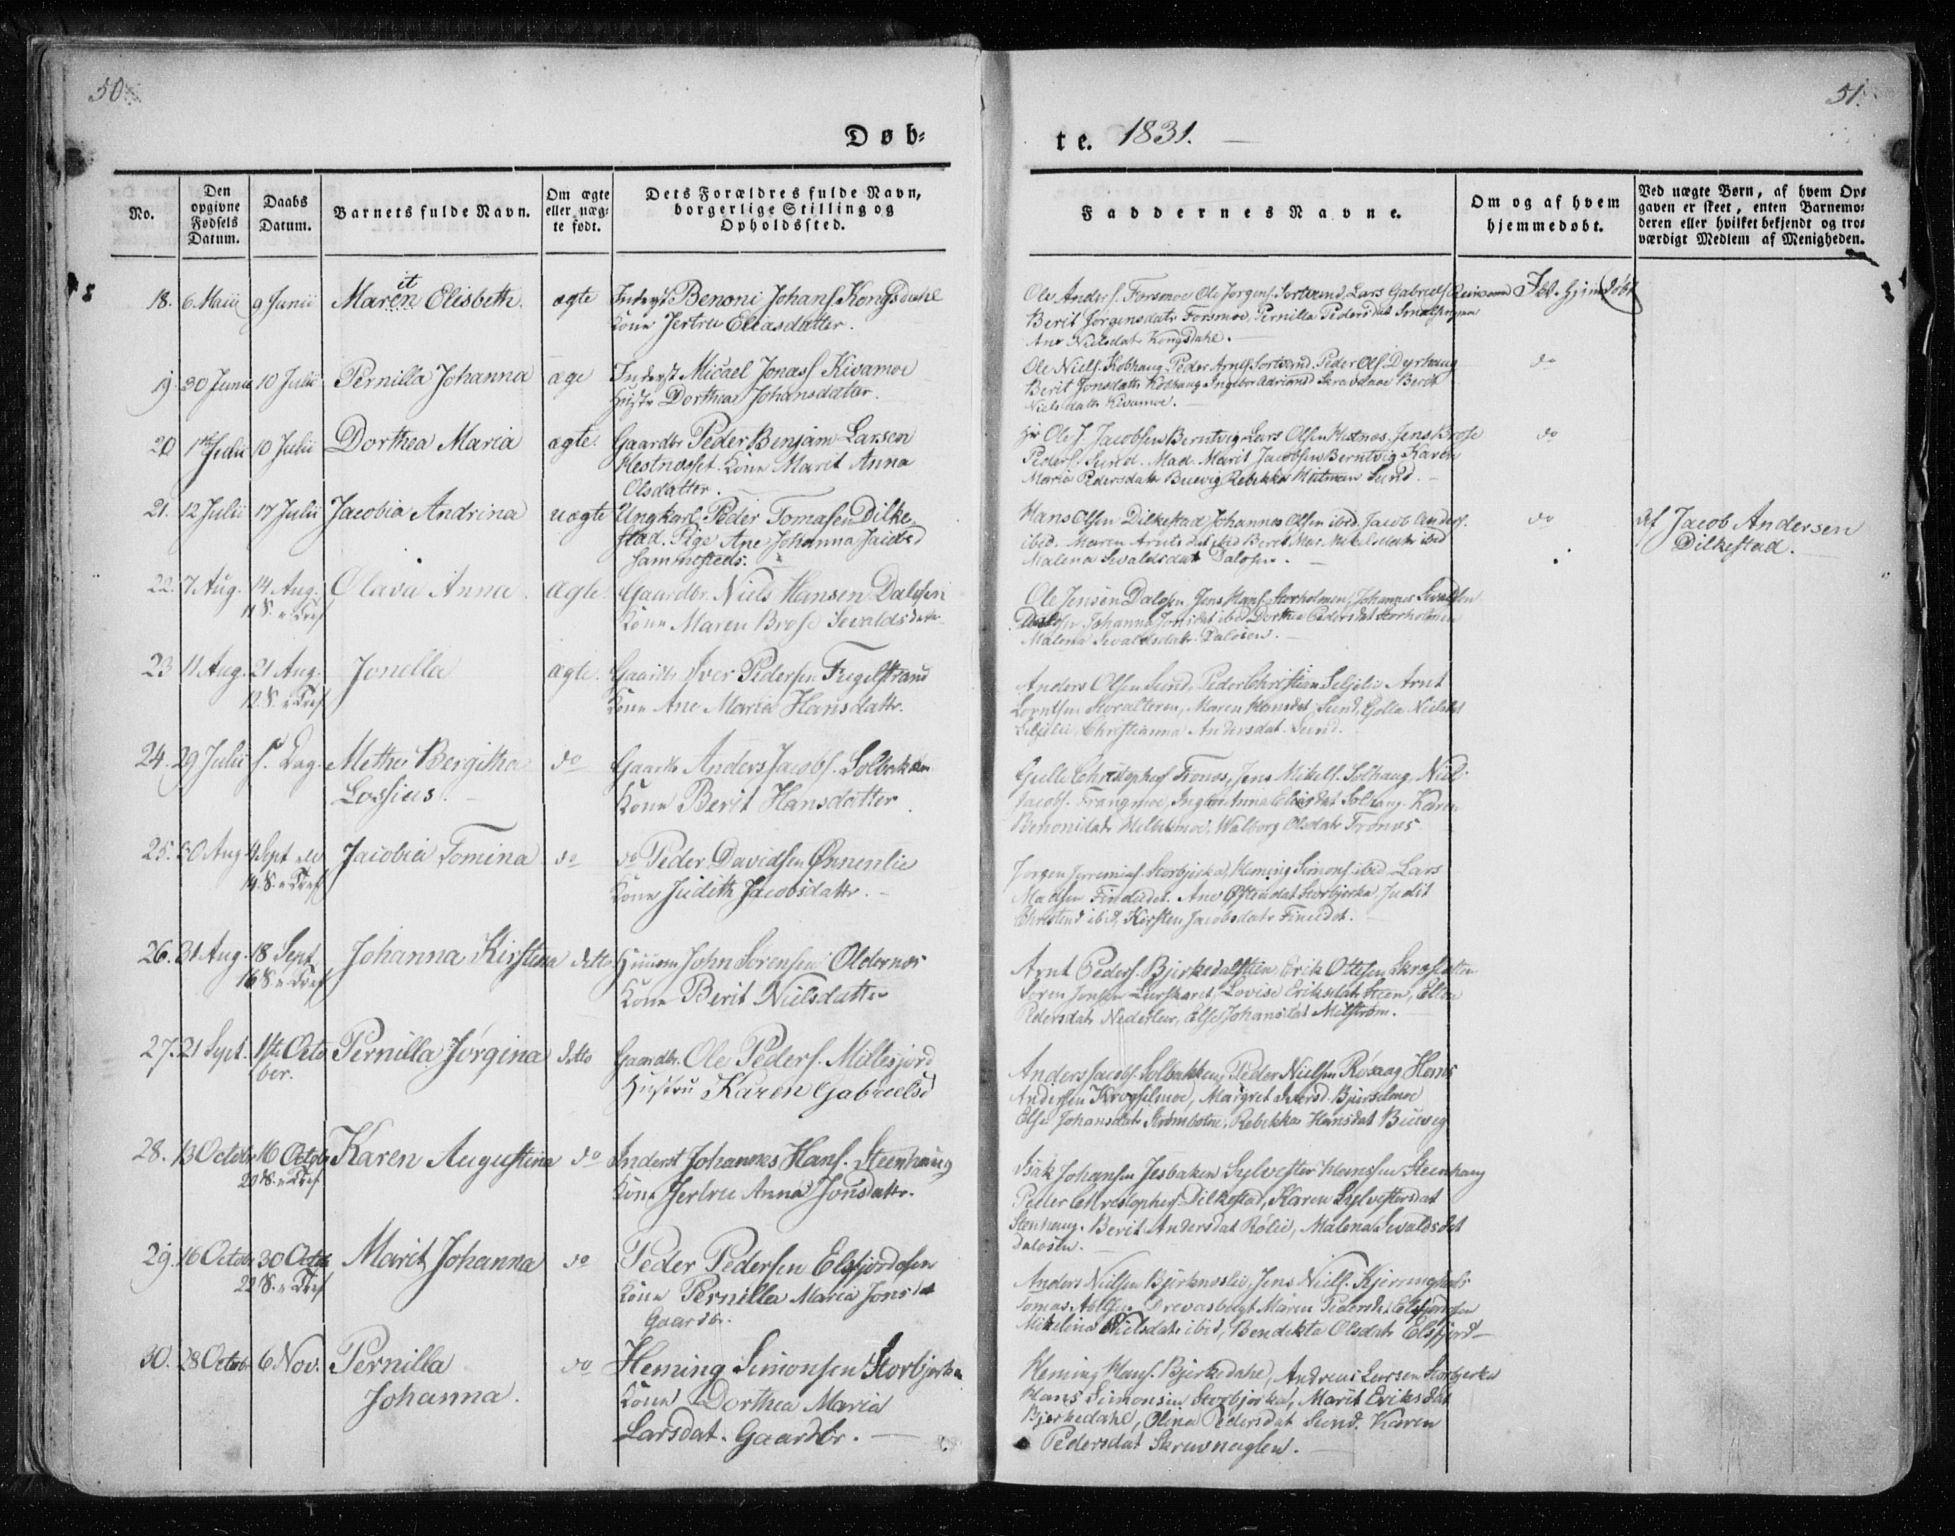 50.
51.
Døb-
te. 1831.
No.
Den opgivne Fødsels Datum.
Daabs Datum.
Barnets fulde Navn.
Om ægte eller uæg- te født.
Dets Forældres fulde Navn, borgerlige Stilling og Opholdssted.
Faddernes Navne.
Om og af hvem hjemmedøbt.
Ved uægte Børn, af hvem Op- gaven er skeet, enten Barnemo- deren eller hvilket bekjendt og tro- værdigt Medlem af Menigheden.
18. 6 Maii 9 Junii Maren Elisbeth ægte Inderst Benoni Johans. Kongsdahl
it
Kone Jertru Eliasdatter.
Ole Anders. Forsmoe Ole Jørgens. Sortrand, Lars Gabriels.
Berit Jørgensdatr Forsmoe, Pernilla Pedersdat
Ane Nielsdatr Kongsdahl.
19. 30 Junii 10 Julii Pernilla Johanna æge Inderst Micael Jonass. Kivamoe
Hustr Dorthea Johansdater.
Ole Niels. Kolhaug Peder Arnts. Sortrand. Peder Ols. Dyrhaug
Berit Jonsdatr Kolhaug Berit
Nielsdattr Kivamoe.
do
20 1ste Julii 10 Julii Dorthea Maria ægte. Gaardbr Peder Benjam. Larsen
Hestnesset. Kone Marit Anna
Olsdatter.
Hr Ole J. Jacobsen Berntvig Lars Olsen Hestnes. Jens Brose
Peders. Sund. Mad. Marit Jacobsen Berntvig Karen
Maria Pedersdatr Buevig Rebekka Sund.
do
21. 12 Julii 17 Julii Jacobia Andrina uægte Ungkarl Peder Tomasen Dilke-
stad. Pige Ane Johanna
Sammesteds.
Hans Olsen Dilkestad Johannes Olsen ibid, Jacob Anders.
ibid. Maren ibid Berit Mar. ibid
Malena Sivaldsdatr Dalosen.
do
Af Jacob Andersen
Dilkestad.
22. 7 Aug. 14 Aug. Olava Anna. ægte. Gaardbr. Niels Hansen Dalosen
11 S. e Tref Kone Maren Brose Sevaldsdatr
Ole Jensen Dalosen Jens Hans. Storholmen, Johannes Sivaldsen
Dalosen Johanna ibid Dorthea Pedersdat Storholmen
Malena Sevaldsdatr. Dalosen.
23 11 Aug. 21 Aug. Jonella ægte. Gaardb. Iver Pedersen Fugelstrand
12 S. e Tref Kone Ane Maria Hansdattr.
Anders Olsen Sund, Peder Christian Seljelie Arnt
Storalteren, Maren Hansdat. Sund, Golla Nielsdat
Seljelie, Christianna Andersdat. Sund.
24. 29 Julii s. Dag. Methe Bergitha do Gaardb Anders Jacobs. Solbakken
Lossius. Kone Berit Hansdatter
Christophers. Trones, Jens Mikels. Solhaug, Niel
Jacobs. Frangmoe, Anna Solhaug. Karen
Benonisdatr Walborg Olsdatr Trones
25. 30 Aug 4 Sept Jacobia Tomina do do Peder Davidsen Ønnenlie
14 S. e Tref Kone Judith Jacobsdattr.
Jørgen Storbjerka, Heming Simons. ibid, Lars
Madsen Finedet. Ane Storbjerka Judit
ibid, Kirsten Jacobsdatr Finedet.
26. 31 Aug. 18 Sept. Johanna Kirstina detto John Sørensen Oldernes
16 S. e Tref Kone Berit Nielsdatter
Arnt Peders. Bjerkedalstien Erik Ottesen
Søren Jonsen Lovise Eriksdatr Steen, Ellen
Pedersdatr Nederleir, Else Johansdat Milstrøm.
27. 21 Sept. 1ste Octo Pernilla Jørgina detto Gaardbr. Ole Peders. Mellesjord
ber. Hustru Karen Gabrielsd
Anders Jacobs. Solbakken, Peder Nielsen Røsaag Hans
Andersen Margret Iversd
Else Johansdatr Rebekka Hansdat Buevig
28. 13 Octobr 16 Octobr Karen Augustina do Inderst Johannes Hans. Steenhaug
20 S. e Tref Kone Jertru Anna Jonsdattr.
Isak Johansen Jesbaken Sylvester Hansen Steenhaug
Peder Christophers. Dilkestad, Karen Sylvestersdat
Stenhaug. Berit Andersdat Rølie, Malena Sevaldsdat
Dalosen.
29. 16 Octobr 30 Octob Marit Johanna do Peder Pedersen Elsfjordosen
22 S. e Tref Kone Pernilla Maria Jonsdat
Gaardbr.
Anders Nielsen Bjerkneslie, Jens Niels.
Tomas Drevasbugt Maren Pedersdat Elsfjordosen
Mikelina Nielsdatr ibid, Bendikta Olsdatr Elsfjord
30. 28 Octob 6 Nov. Pernilla do Heming Simonsen Storbjerka
Johanna. Kone Dorthea Maria
Larsdat. Gaardbr.
Heming Hans. Bjerkedahl, Andreas Larsen Storbjerka
Hans Simonsen Storbjerka, Marit Eriksdat
Bjerkedahl, Olina Pedersdat Sund. Karen
Pedersdat Skruvnaglen.